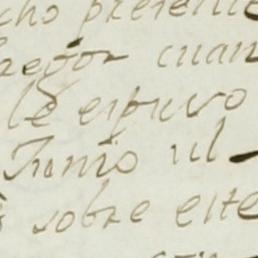 cho presente
regor cuan
le estuvo
Junio ul
sobre este